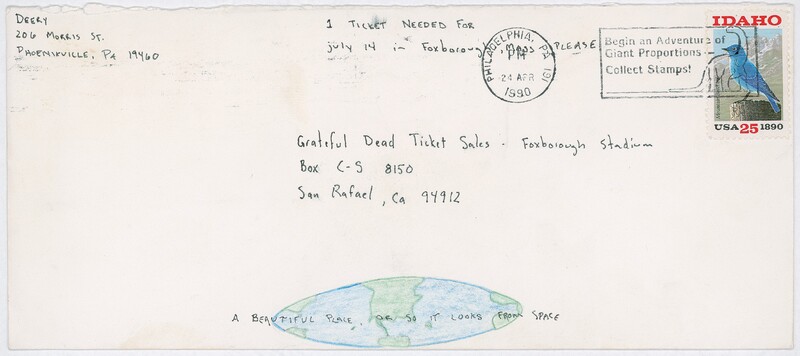 DEERY
206 MORRIS ST.
PHOENIXVILLE, PA 19460
1 TICKET NEEDED FOR
july 14 in Foxborough, MASS PLEASE
PHILADELPHIA, PA 191
PM
24 APR
1990
Begin an Adventure of
Giant Proportions
Collect Stamps!
IDAHO
USA 25 1890
Grateful Dead Ticket Sales - Foxborough Stadium
Box C-S 8150
San Rafael, Ca 94912
A BEAUTIFUL PLACE, OR SO IT LOOKS FROM SPACE